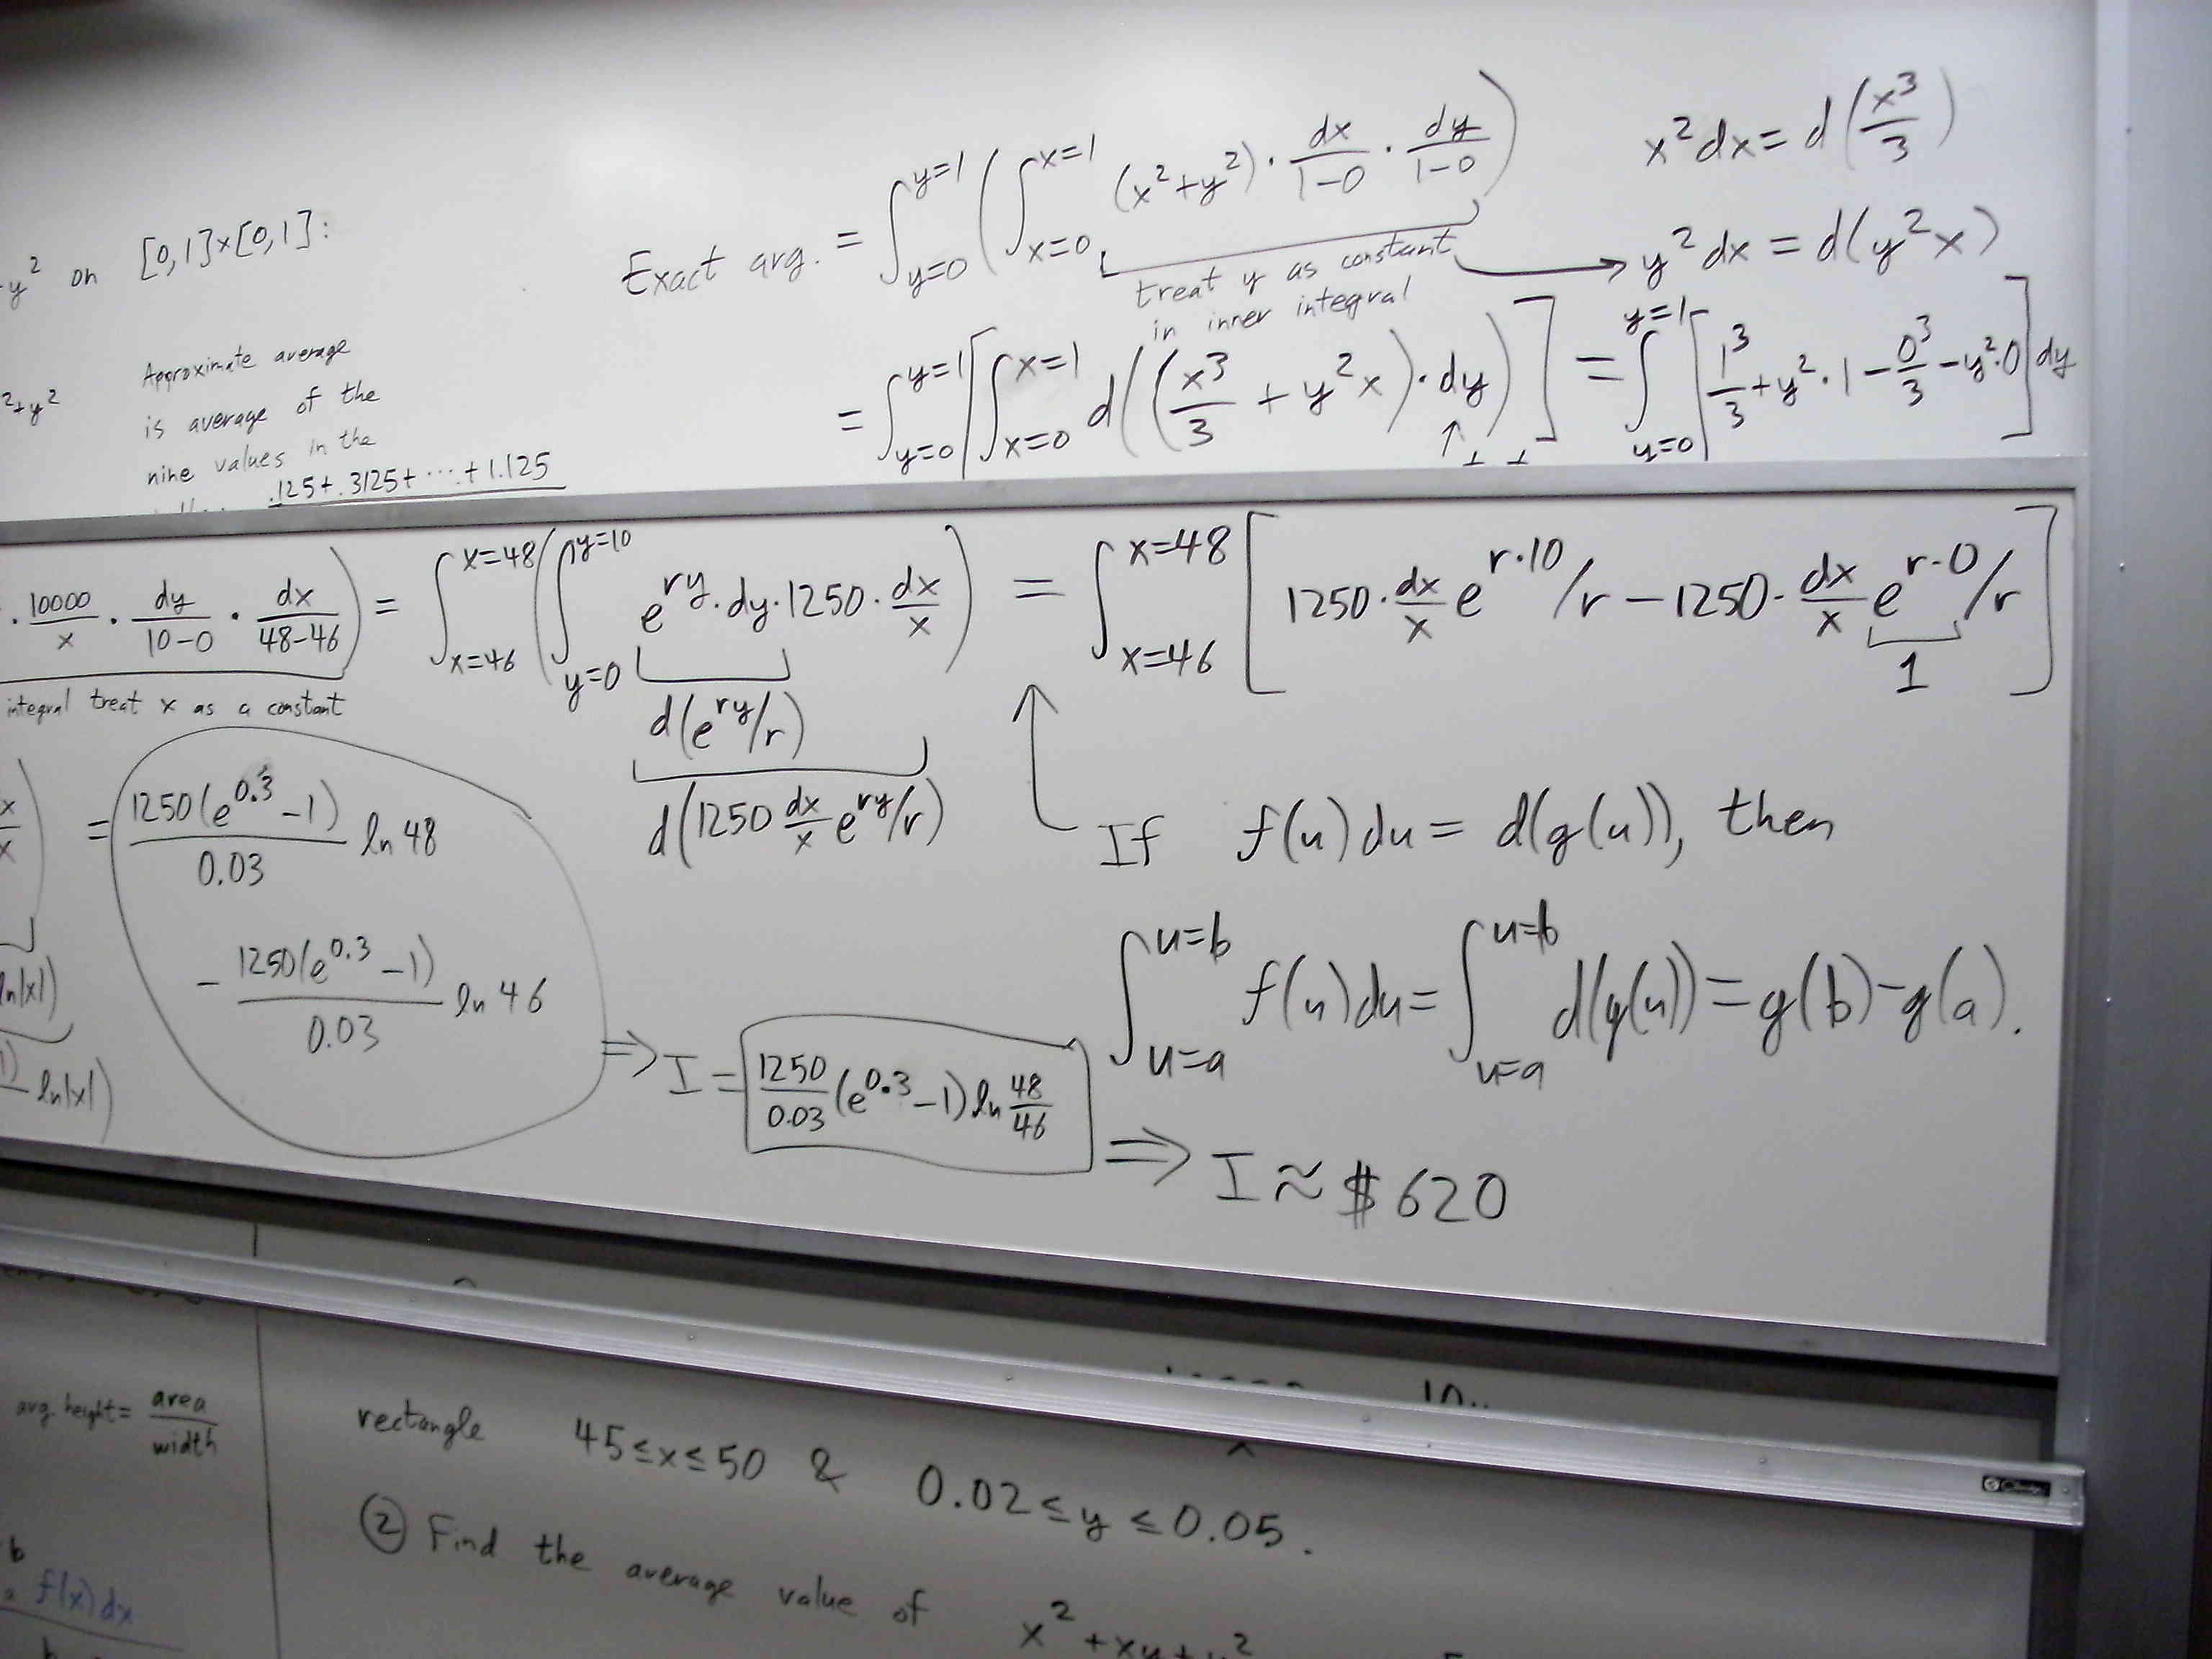 y² on [0,1]×[0,1]:
²+y²
Approximate average
is average of the
nine values in the
.125+.3125+⋯+1.125
Exact avg. = ∫_{y=0}^{y=1} ( ∫_{x=0}^{x=1} (x²+y²) · dx/(1-0) · dy/(1-0) )
treat y as constant
in inner integral
x²dx = d(x³/3)
→ y²dx = d(y²x)
= ∫_{y=0}^{y=1} [ ∫_{x=0}^{x=1} d((x³/3 + y²x)·dy) ] = ∫_{y=0}^{y=1} [ 1³/3 + y²·1 - 0³/3 - y²·0 ] dy
↑
· 10000/x · dy/(10-0) · dx/(48-46) ) = ∫_{x=46}^{x=48} ( ∫_{y=0}^{y=10} e^{ry}·dy·1250·dx/x ) = ∫_{x=46}^{x=48} [ 1250·dx/x e^{r·10}/r - 1250·dx/x e^{r·0}/r ]
1
integral treat x as a constant
d(e^{ry}/r)
d(1250 dx/x e^{ry}/r)
= 1250(e^{0.3}-1)/0.03 ln 48
- 1250(e^{0.3}-1)/0.03 ln 46
ln|x|)
ln|x|)
⇒ I = 1250/0.03 (e^{0.3}-1) ln 48/46
If f(u)du = d(g(u)), then
∫_{u=a}^{u=b} f(u)du = ∫_{u=a}^{u=b} d(g(u)) = g(b)-g(a).
⇒ I ≈ $620
avg. height = area/width
b
a f(x)dx
rectangle 45≤x≤50 & 0.02≤y≤0.05.
② Find the average value of x²+xy+y²